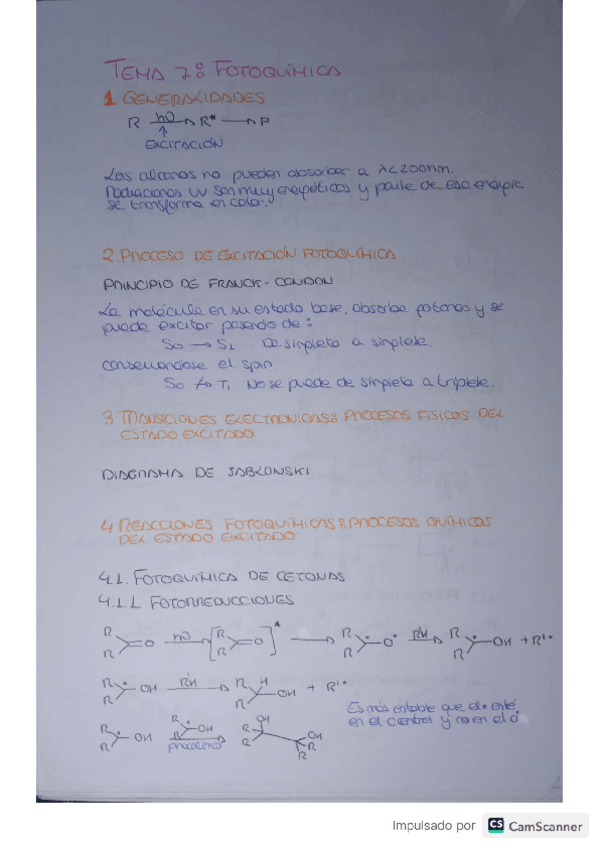 TEMA 7: FOTOQUÍMICA
1. GENERALIDADES
R —hν→ R* → P
↑
EXCITACIÓN
Los alcanos no pueden absorber a λ<200nm.
Radiaciones UV son muy energéticos y parte de esa energía
se transforma en calor.
2. PROCESO DE EXCITACIÓN FOTOQUÍMICA
PRINCIPIO DE FRANCK-CONDON
La molécula en su estado base, absorbe fotones y se
puede excitar pasando de:
S0 → S1 De singlete a singlete.
conservandose el spin
S0 ↛ T1 No se puede de singlete a triplete.
3. TRANSICIONES ELECTRONICAS: PROCESOS FÍSICOS DEL
ESTADO EXCITADO
DIAGRAMA DE JABLONSKI
4. REACCIONES FOTOQUÍMICAS: PROCESOS QUÍMICOS
DEL ESTADO EXCITADO
4.1. FOTOQUÍMICA DE CETONAS
4.1.1. FOTORREDUCCIONES
R R =O —hν→ [R R =O]* → R R •–O• —R'H→ R R •–OH + R'•
R R •–OH —R'H→ R R H OH + R'•
Es más estable que el • esté
en el central y no en el O
R R •–OH —R R •–OH→ R R OH OH R R
Impulsado por CS CamScanner